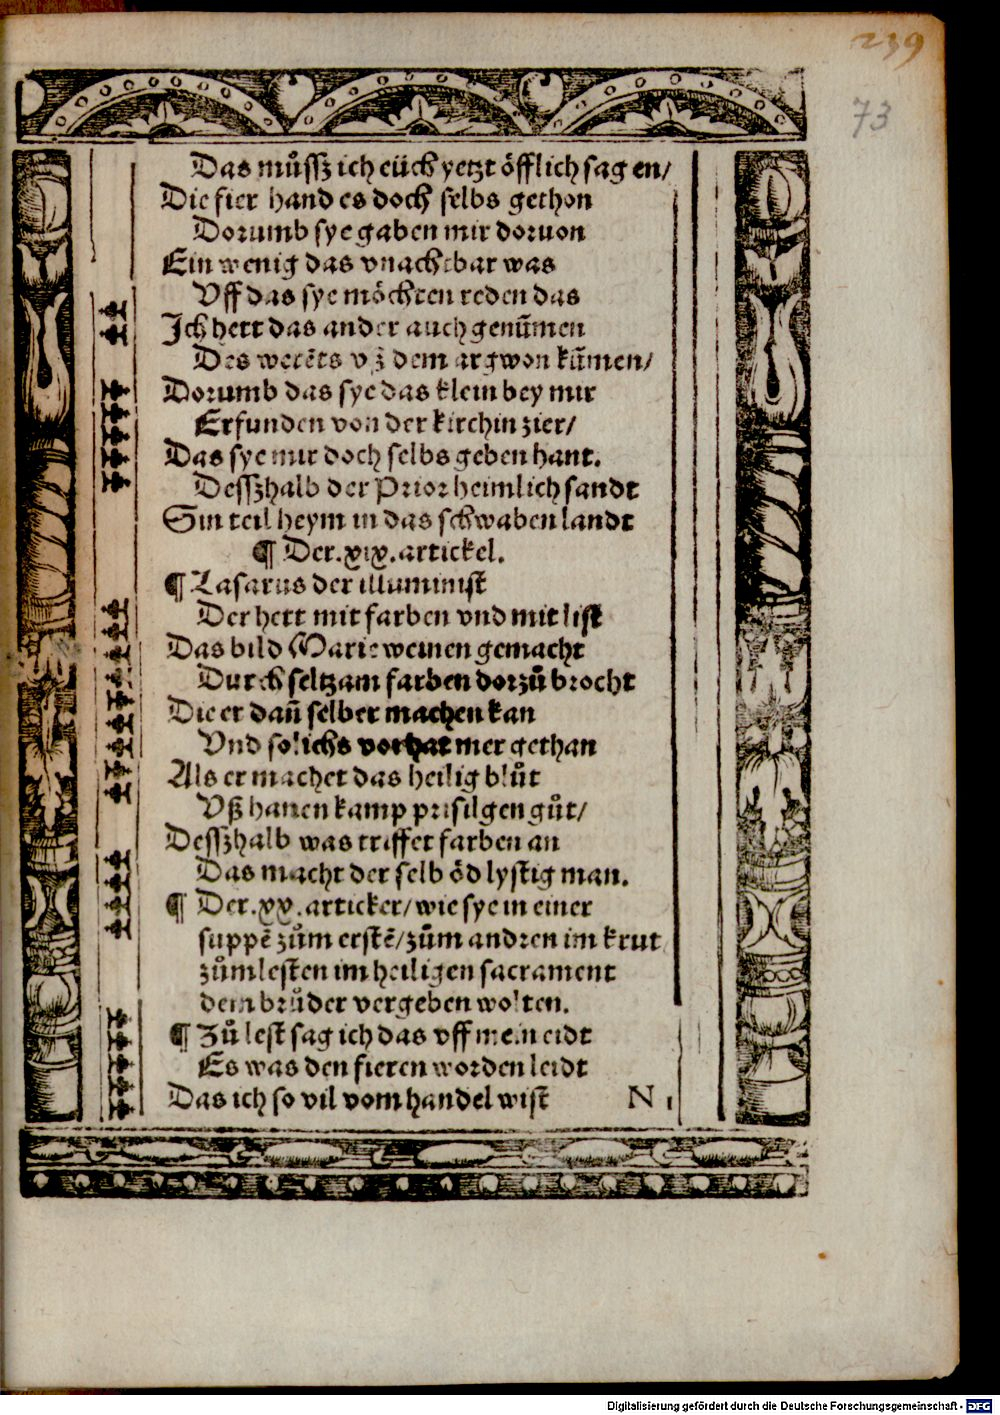 239
73
Das müssz ich eüch yetzt öfflich sagen/
Die fier hand es doch selbs gethon
Dorumb sye gaben mir doruon
Ein wenig das vnachtbar was
Vff das sye möchten reden das
Ich hett das ander auch genūmen
Des wetēts vß dem argwon kūmen/
Dorumb das sye das klein bey mir
Erfunden von der kirchin zier/
Das sye mir doch selbs geben hant.
Dessz halb der Prior heimlich sandt
Sin teil heym in das schwaben landt
¶ Der .xix. artickel.
¶ Lasarus der illuminist
Der hett mit farben vnd mit list
Das bild Marie weinen gemacht
Durch seltzam farben dorzů brocht
Die er dañ selber machen kan
Vnd solichs vorhat mer gethan
Als er machet das heilig blůt
Vß hanen kamp prisilgen gůt/
Desszhalb was triffet farben an
Das macht der selb öd lystig man.
¶ Der .xx. articker/ wie sye in einer
suppē zům erstē/ zům andren im krut
zům lesten im heiligen sacrament
dem brůder vergeben wolten.
¶ Zů lest sag ich das vff mein eidt
Es was den fieren worden leidt
Das ich so vil vom handel wist N i
Digitalisierung gefördert durch die Deutsche Forschungsgemeinschaft - DFG